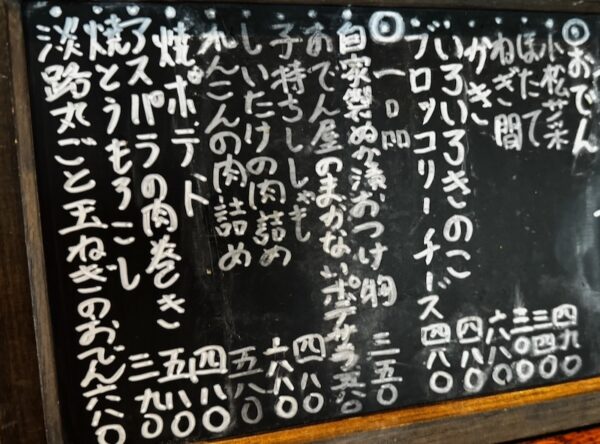 ◎おでん
・小松菜 四九〇
・ほたて 三四〇
・ねぎ間 三〇〇
・かき 六八〇
・いろいろきのこ 四八〇
・ブロッコリーチーズ 四八〇
◎一品
・自家製ぬか漬おつけ物 三五〇
・おでん屋のまかないポテサラ 五八〇
・子持ちししゃも 四八〇
・しいたけの肉詰め 六八〇
・れんこんの肉詰め 五八〇
・焼ポテト 四八〇
・アスパラの肉巻き 五八〇
・焼とうもろこし 三九〇
・淡路丸ごと玉ねぎのおでん 六八〇